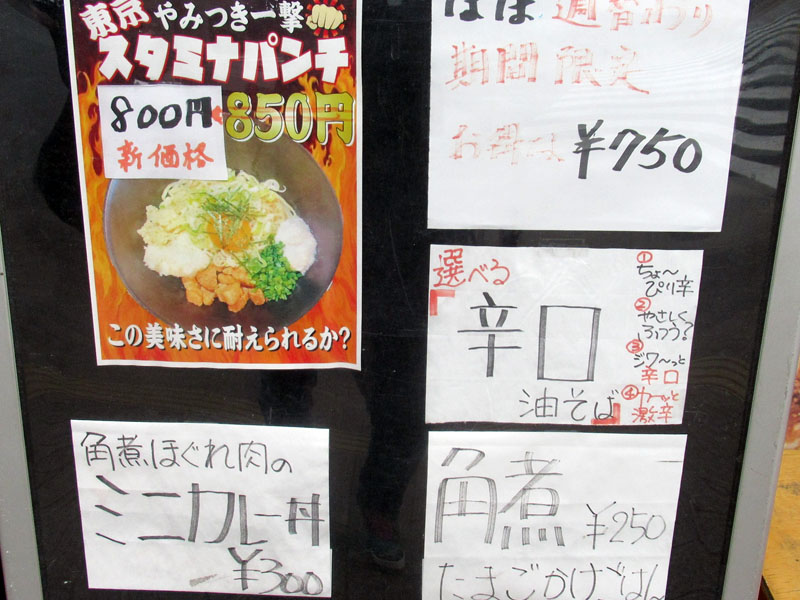 東京 やみつき一撃
スタミナパンチ
800円 850円
新価格
この美味さに耐えられるか?
ほぼ 週替わり
期間限定
お得な ¥750
選べる
「辛口
油そば」
①ちょ〜
ぴり辛
②やさしく
ふつう?
③ジワ〜っと
辛口
④カ〜ッと
激辛
角煮ほぐれ肉の
ミニカレー丼
¥300
角煮 ¥250
たまごかけごはん